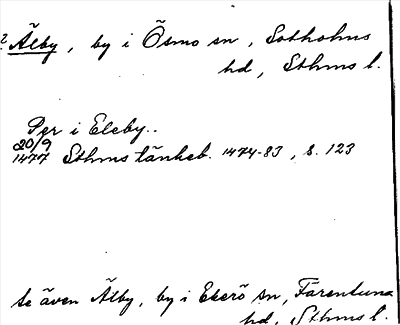 ? Älby, by i Ösmo sn, Sotholms
hd, Sthms l.
Per i Eleby..
20/9
1477 Sthms tänkeb. 1474-83, s. 123
se även Älby, by i Ekerö sn, Färentuna
hd, Sthms l.